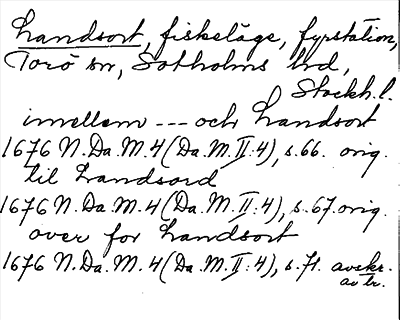 Landsort, fiskeläge, fyrstation,
Torö sn, Sotholms hd,
Stockh.l.
imellem --- och Landsort
1676 N.Da.M.4 (Da.M.II:4), s.66. orig.
til Landsord
1676 N.Da.M.4 (Da.M.II:4), s.67. orig.
over for Landsort
1676 N.Da.M.4 (Da.M.II:4), s.71. avskr.
av tr.